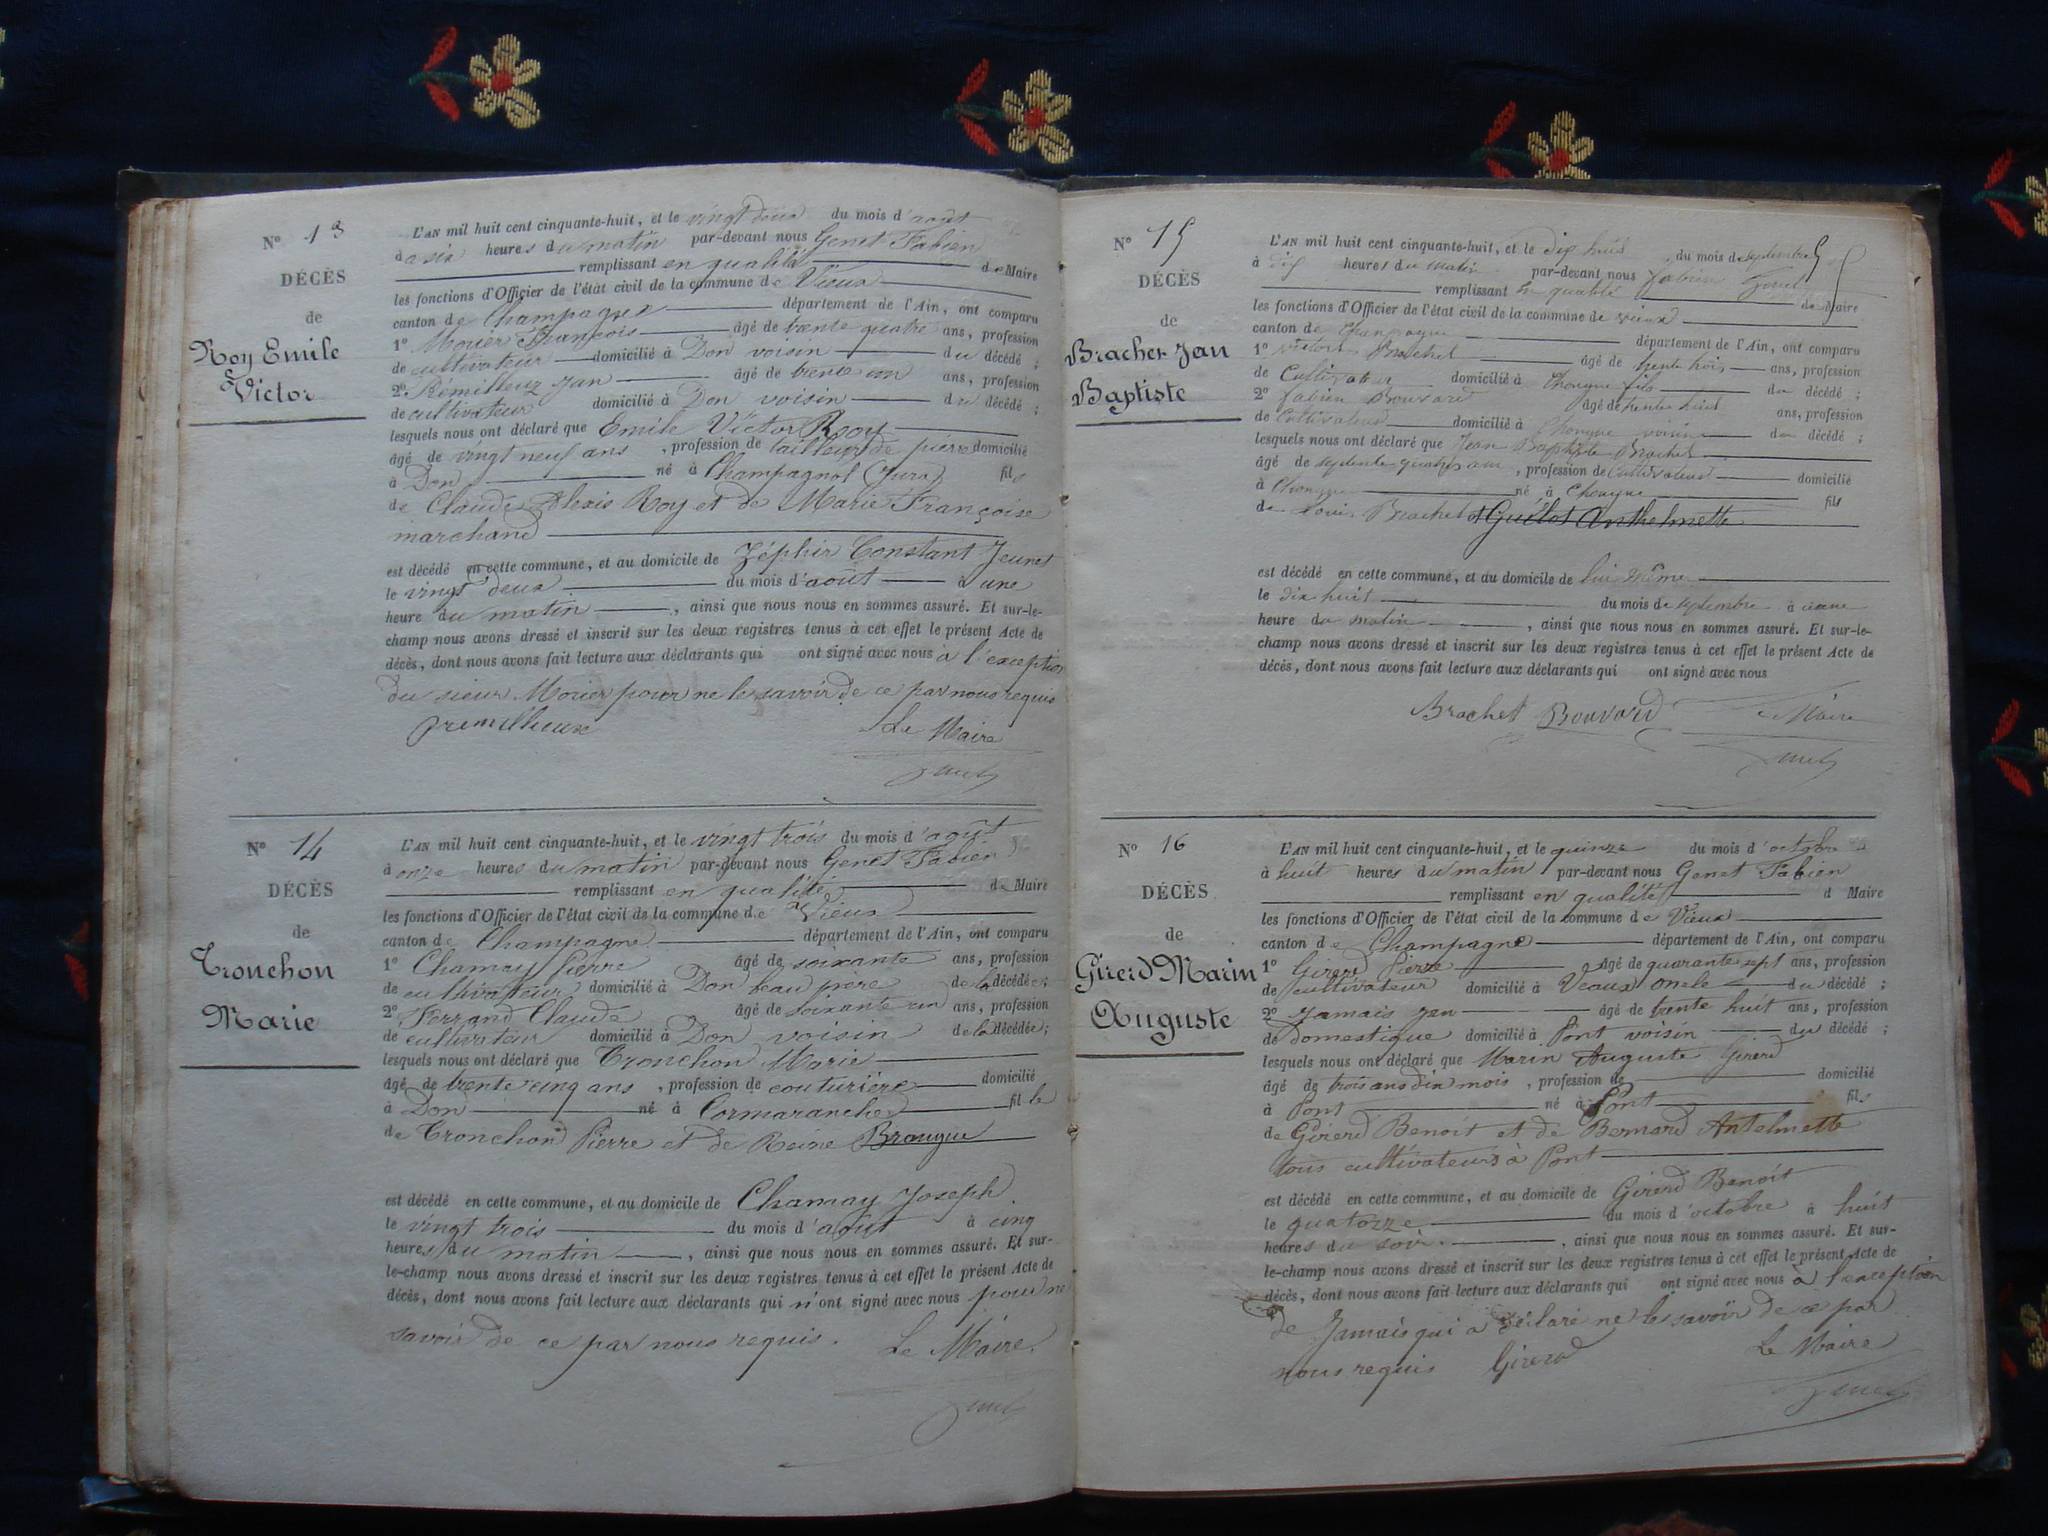 N° 13
DÉCÈS
de
Roy Emile
Victor
L'AN mil huit cent cinquante-huit, et le vingt deux du mois d'août
à six heures du matin par-devant nous Genet Fabien
remplissant en qualité de Maire
les fonctions d'Officier de l'état civil de la commune de Vieux
canton de Champagne département de l'Ain, ont comparu
1° Morier François âgé de trente quatre ans, profession
de cultivateur domicilié à Don voisin du décédé ;
2° Rémilleux Jean âgé de trente un ans, profession
de cultivateur domicilié à Don voisin du décédé ;
lesquels nous ont déclaré que Emile Victor Roy
âgé de vingt neuf ans, profession de tailleur de pierre domicilié
à Don né à Champagnol (Jura) fils
de Claude Alexis Roy et de Marie Françoise
marchand
est décédé en cette commune, et au domicile de Zéphir Constant Jeunet
le vingt deux du mois d'août à une
heure du matin, ainsi que nous nous en sommes assuré. Et sur-le-
champ nous avons dressé et inscrit sur les deux registres tenus à cet effet le présent Acte de
décès, dont nous avons fait lecture aux déclarants qui ont signé avec nous à l'exception
du sieur Morier pour ne le savoir de ce par nous requis
premillieux Le Maire
N° 14
DÉCÈS
de
Tronchon
Marie
L'AN mil huit cent cinquante-huit, et le vingt trois du mois d'août
à onze heures du matin par-devant nous Genet Fabien
remplissant en qualité de Maire
les fonctions d'Officier de l'état civil de la commune de Vieux
canton de Champagne département de l'Ain, ont comparu
1° Chamay Pierre âgé de soixante ans, profession
de cultivateur domicilié à Don beau père de la décédée ;
2° Ferrand Claude âgé de soixante un ans, profession
de cultivateur domicilié à Don voisin de la décédée ;
lesquels nous ont déclaré que Tronchon Marie
âgé de trente cinq ans, profession de couturière domicilié
à Don né à Cormaranche fille
de Tronchon Pierre et de Reine
est décédé en cette commune, et au domicile de Chamay Joseph
le vingt trois du mois d'août à cinq
heures du matin, ainsi que nous nous en sommes assuré. Et sur-
le-champ nous avons dressé et inscrit sur les deux registres tenus à cet effet le présent Acte de
décès, dont nous avons fait lecture aux déclarants qui n'ont signé avec nous pour ne
savoir de ce par nous requis. Le Maire
N° 15
DÉCÈS
de
Brachet Jean
Baptiste
L'AN mil huit cent cinquante-huit, et le dix huit du mois de septembre
à dix heures du matin par-devant nous Fabien Genet
remplissant en qualité de Maire
les fonctions d'Officier de l'état civil de la commune de vieux
canton de Champagne département de l'Ain, ont comparu
1° Victor Brachet âgé de trente trois ans, profession
de Cultivateur domicilié à Chongne fils du décédé ;
2° Fabien Bouvard âgé de trente huit ans, profession
de Cultivateur domicilié à Chongne voisin du décédé ;
lesquels nous ont déclaré que Jean Baptiste Brachet
âgé de septente quatre ans, profession de Cultivateur domicilié
à Chongne né à Chongne fils
de Louis Brachet et Guillot Anthelmette
est décédé en cette commune, et au domicile de lui même
le dix huit du mois de septembre à une
heure du matin, ainsi que nous nous en sommes assuré. Et sur-le-
champ nous avons dressé et inscrit sur les deux registres tenus à cet effet le présent Acte de
décès, dont nous avons fait lecture aux déclarants qui ont signé avec nous
Brachet Bouvard Maire
N° 16
DÉCÈS
de
Girerd Marin
Auguste
L'AN mil huit cent cinquante-huit, et le quinze du mois d'octobre
à huit heures du matin par-devant nous Genet Fabien
remplissant en qualité d Maire
les fonctions d'Officier de l'état civil de la commune de Vieux
canton de Champagne département de l'Ain, ont comparu
1° Girerd Pierre âgé de quarante sept ans, profession
de cultivateur domicilié à Veaux oncle du décédé ;
2° Jamais Jean âgé de trente huit ans, profession
de domestique domicilié à Pont voisin du décédé ;
lesquels nous ont déclaré que Marin Auguste Girerd
âgé de trois ans dix mois, profession de domicilié
à Pont né à Pont fils
de Girerd Benoit et de Bernard Antelmette
tous cultivateurs à Pont
est décédé en cette commune, et au domicile de Girerd Benoit
le quatorze du mois d'octobre à huit
heures du soir, ainsi que nous nous en sommes assuré. Et sur-
le-champ nous avons dressé et inscrit sur les deux registres tenus à cet effet le présent Acte de
décès, dont nous avons fait lecture aux déclarants qui ont signé avec nous à l'exception
de Jamais qui a déclaré ne le savoir de ce par
nous requis Girerd Le Maire